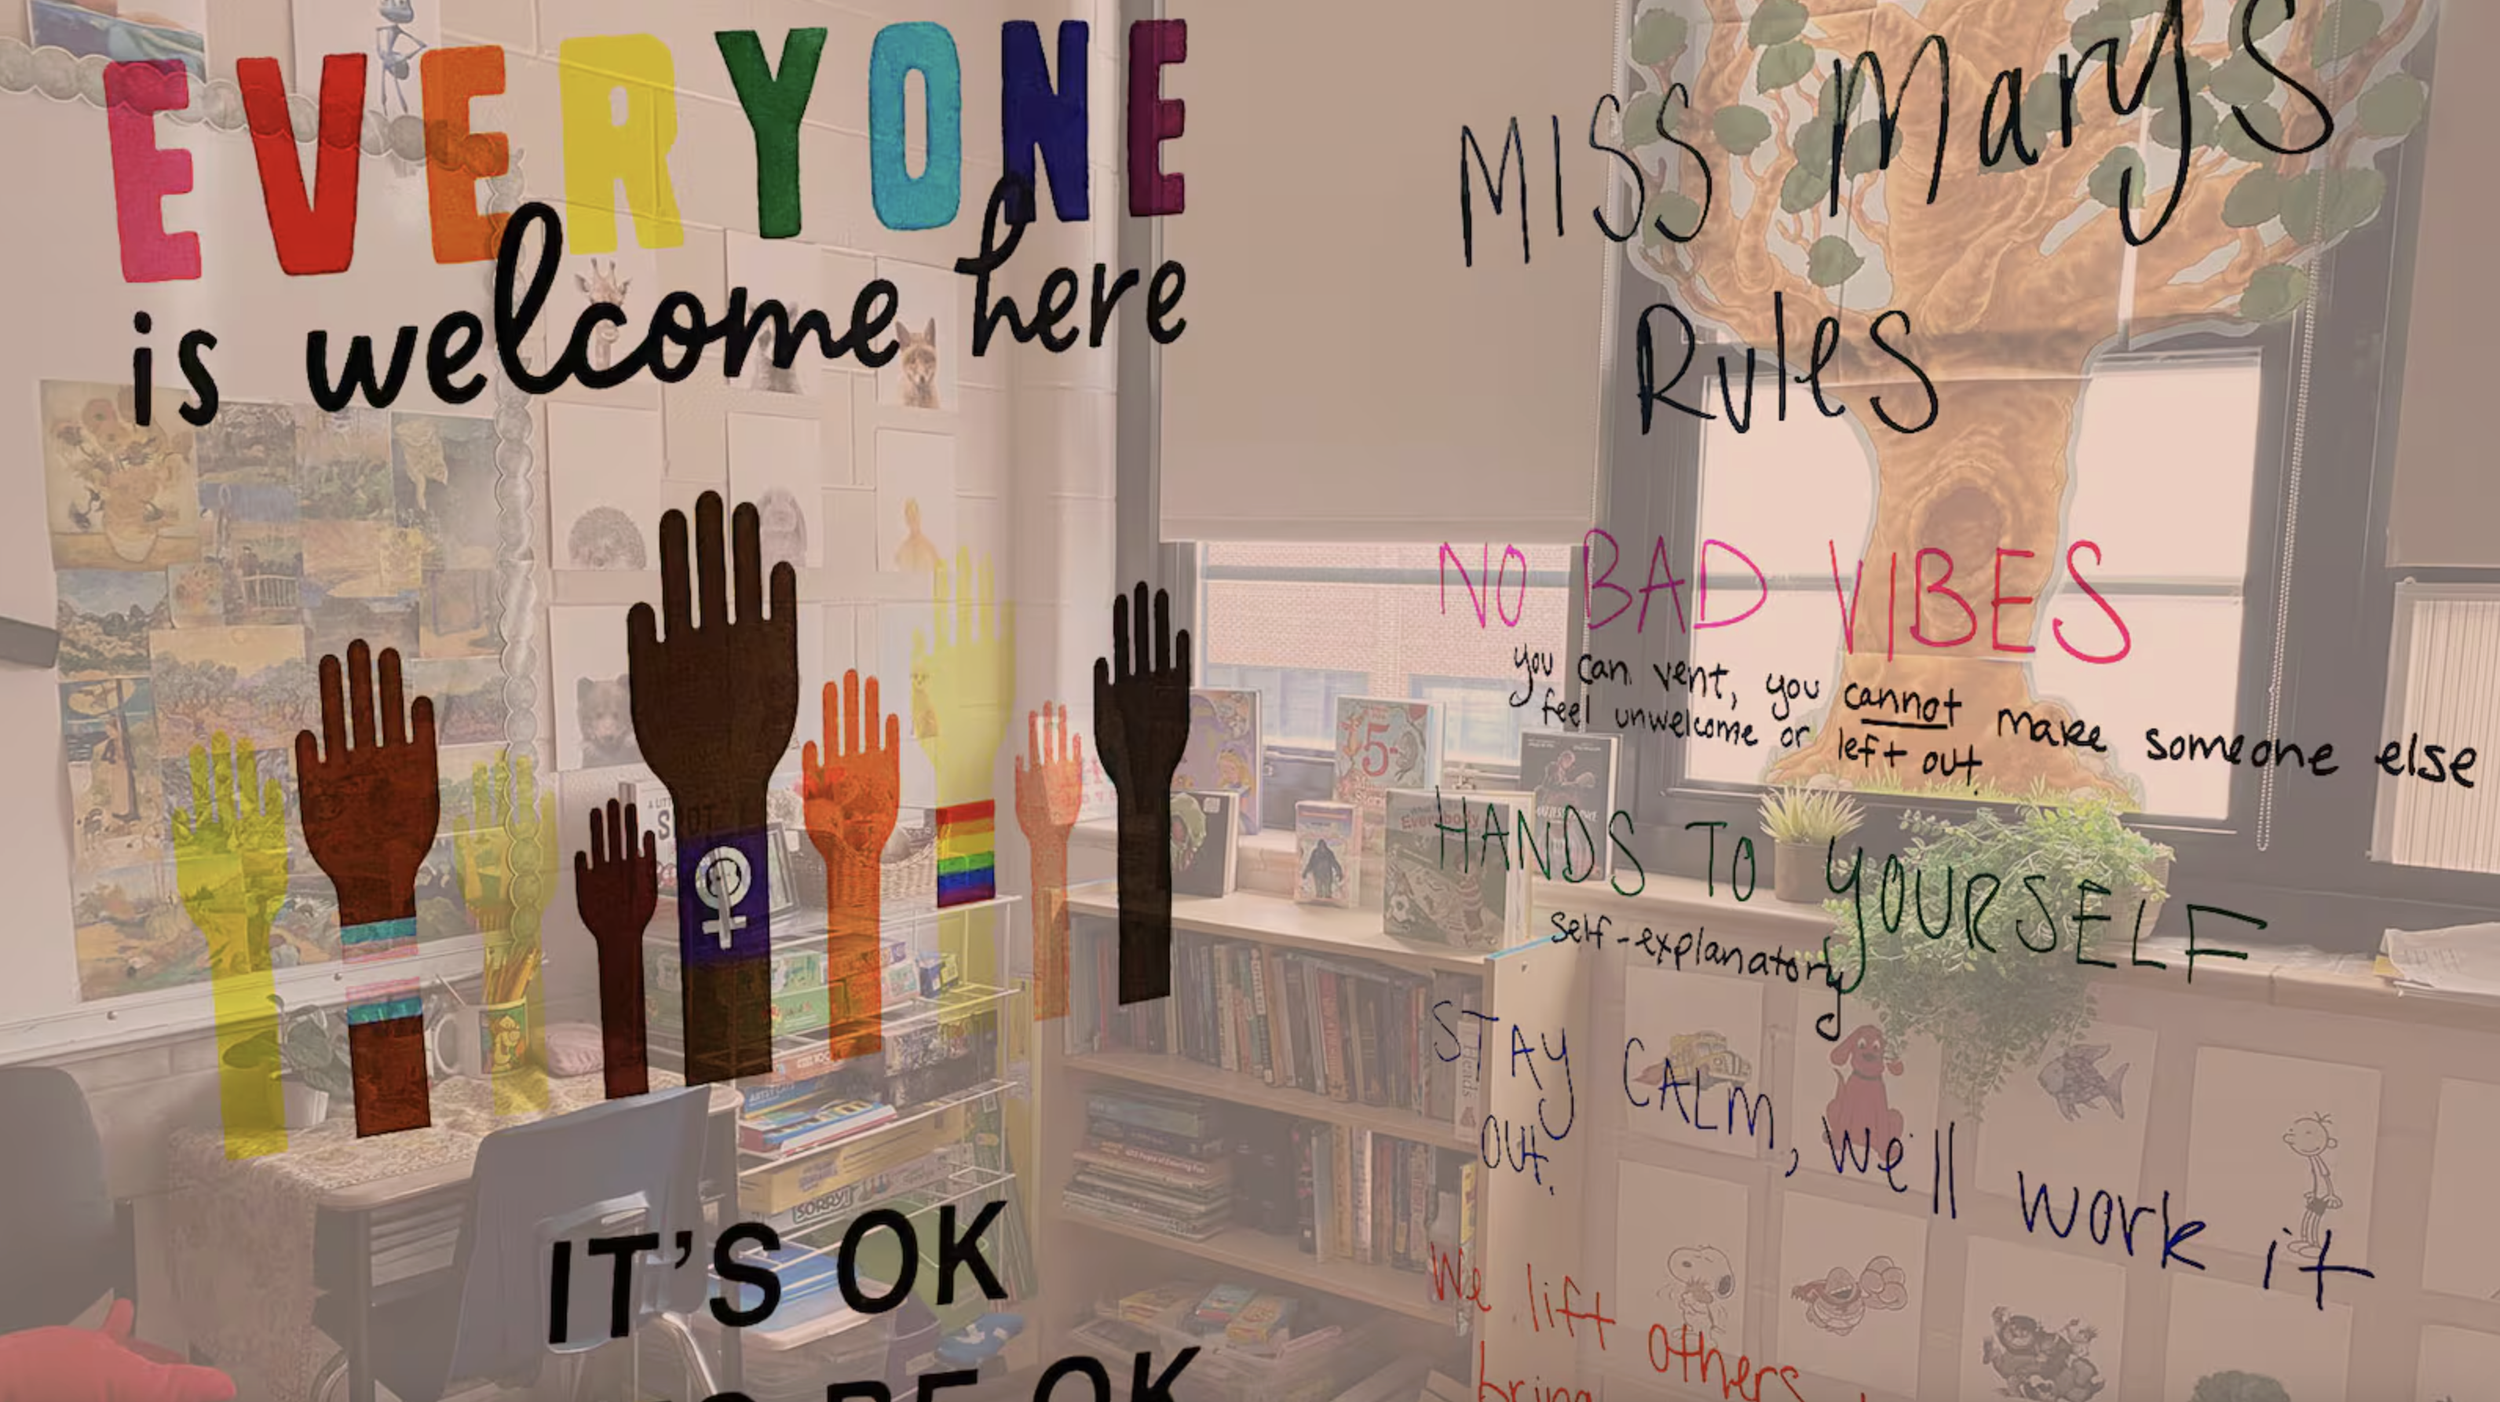 EVERYONE
is welcome here
IT'S OK
BE OK
MISS Mary's
Rules
NO BAD VIBES
you can vent, you cannot make someone else
feel unwelcome or left out.
HANDS TO YOURSELF
self-explanatory
STAY CALM, we'll work it
out.
We lift others
bring
5
Everybody
SORRY!